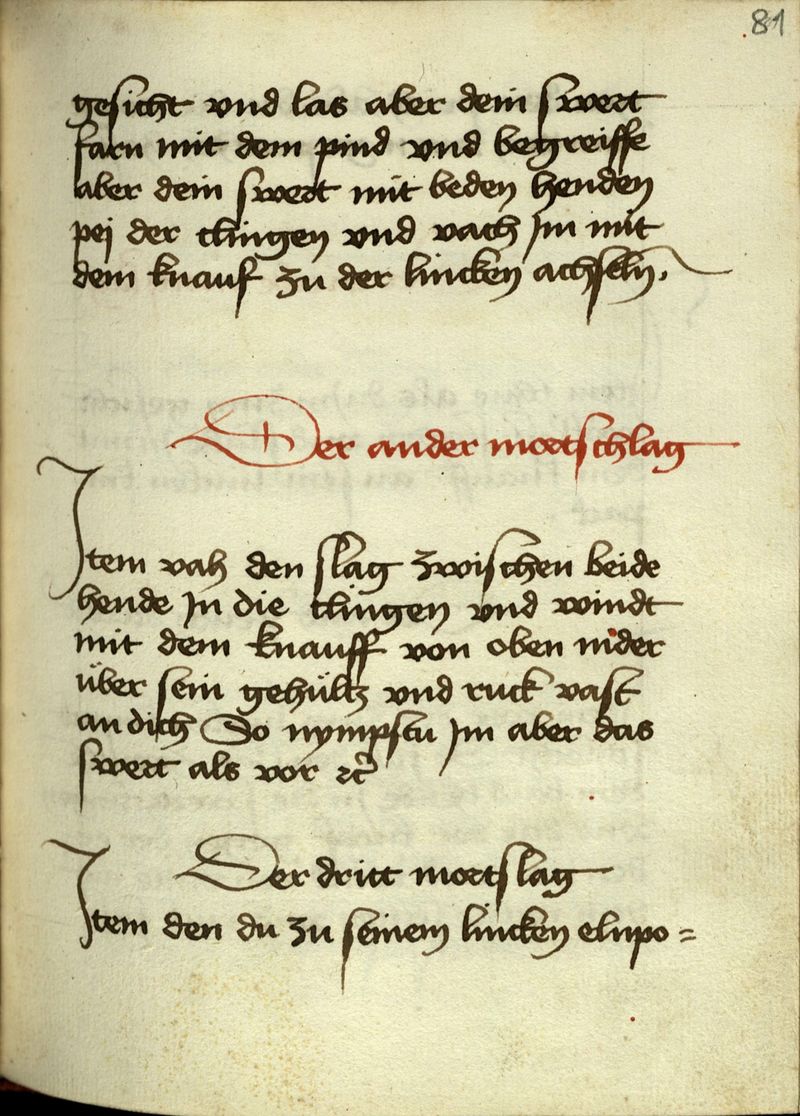 81
gesicht vnd las aber dein swert
farn mit dem pind vnd begreiffe
aber dein swert mit beden henden
pej der clingen vnd vach Jm mit
dem knauf zu der lincken achseln.
Der ander mortschlag
Item vah den slag zwischen beide
hende Jn die clingen vnd windt
mit dem knauff von oben nider
über sein gehültz vnd ruck vast
an dich So nympstu Jm aber das
swert als vor ꝛc
Der dritt mortslag
Item den du zu seinem lincken elnpo=